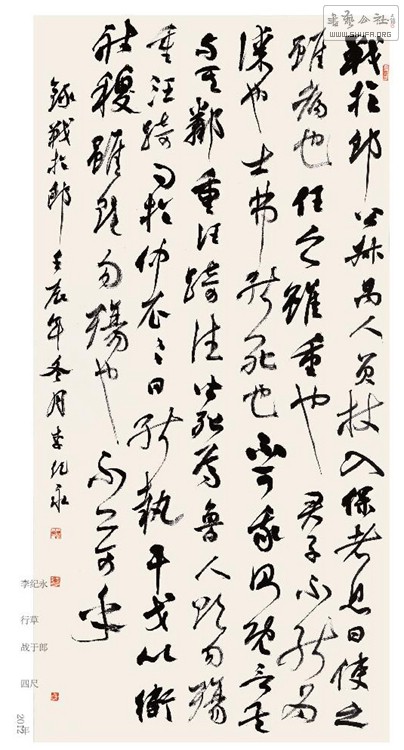 戰於郎公叔禺人負杖入保者息曰使之
雖病也任之雖重也君子不能為
謀也士弗能死也不可我則既言矣
與其鄰重汪踦往皆死焉魯人欲勿殤
重汪踦問於仲尼々曰能執干戈以衛
社稷雖欲勿殤也不亦可乎
錄戰於郎壬辰年冬月李纪永
李纪永
行草
战于郎
四尺
2012年
WWW.SHUFA.ORG